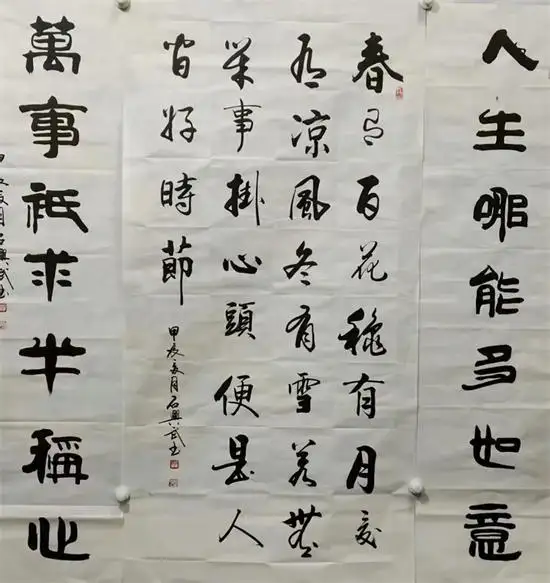 人生哪能多如意
春有百花穐有月夏
有凉風冬有雪若無
閑事掛心頭便是人
間好時節
甲辰夏月石興武書
萬事祗求半稱心
甲辰夏月石興武書